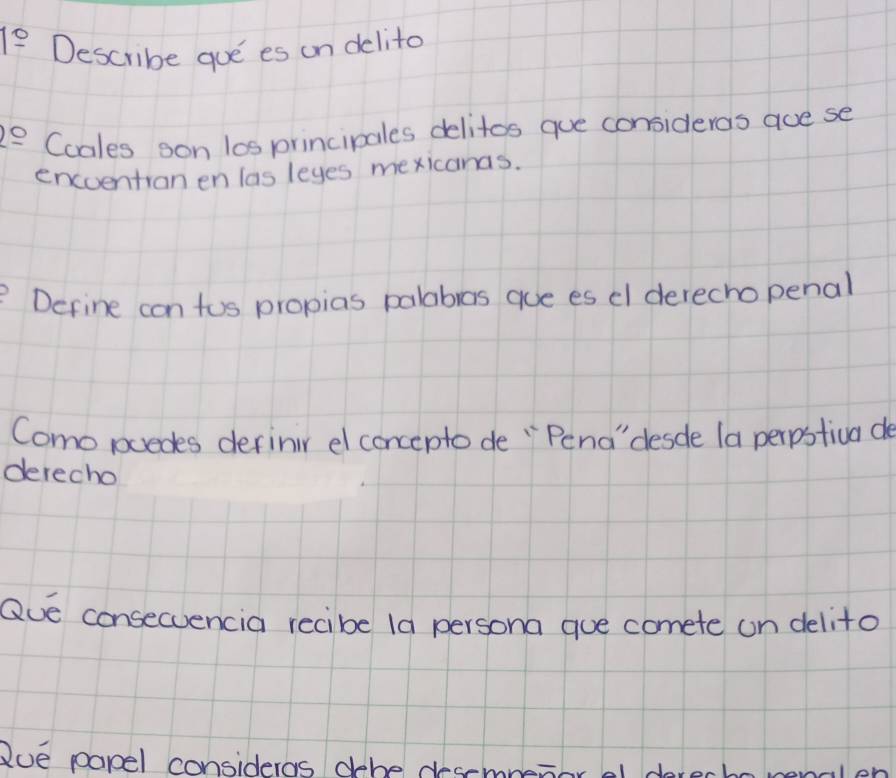 1º Describe qué es un delito
2º Cuales son los principales delitos que consideras que se
encuentran en las leyes mexicanas.
Define con tus propias palabras que es el derecho penal
Como puedes definir el concepto de "Pena" desde la perpstiva de
derecho .
Qué consecuencia recibe la persona que comete un delito
Qué papel consideras debe desempeñar el derecho penal en